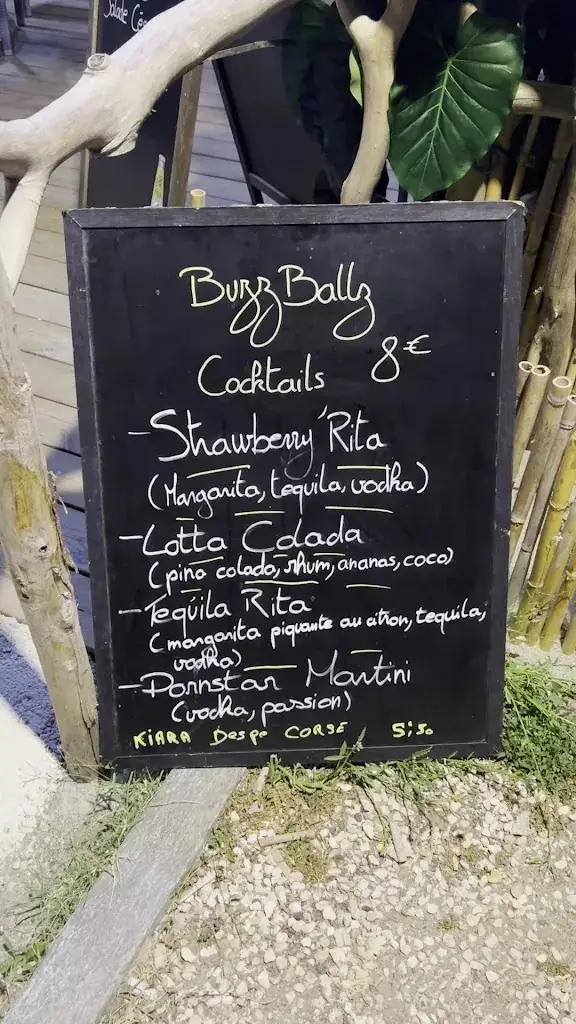 Salade Cé
BuzzBallz
Cocktails 8€
- Strawberry'Rita
(Margarita, tequila, vodka)
- Lotta Colada
(pina colada, rhum, ananas, coco)
- Tequila Rita
(margarita piquante au citron, tequila,
vodka)
- Pornstar Martini
(vodka, passion)
KIARA Despe CORSE 5:50